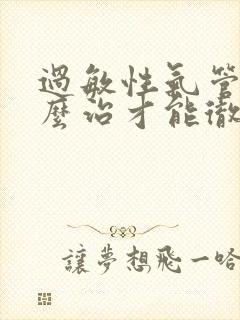 過敏性氣管
麼治才能徹
讓夢想飛一哈